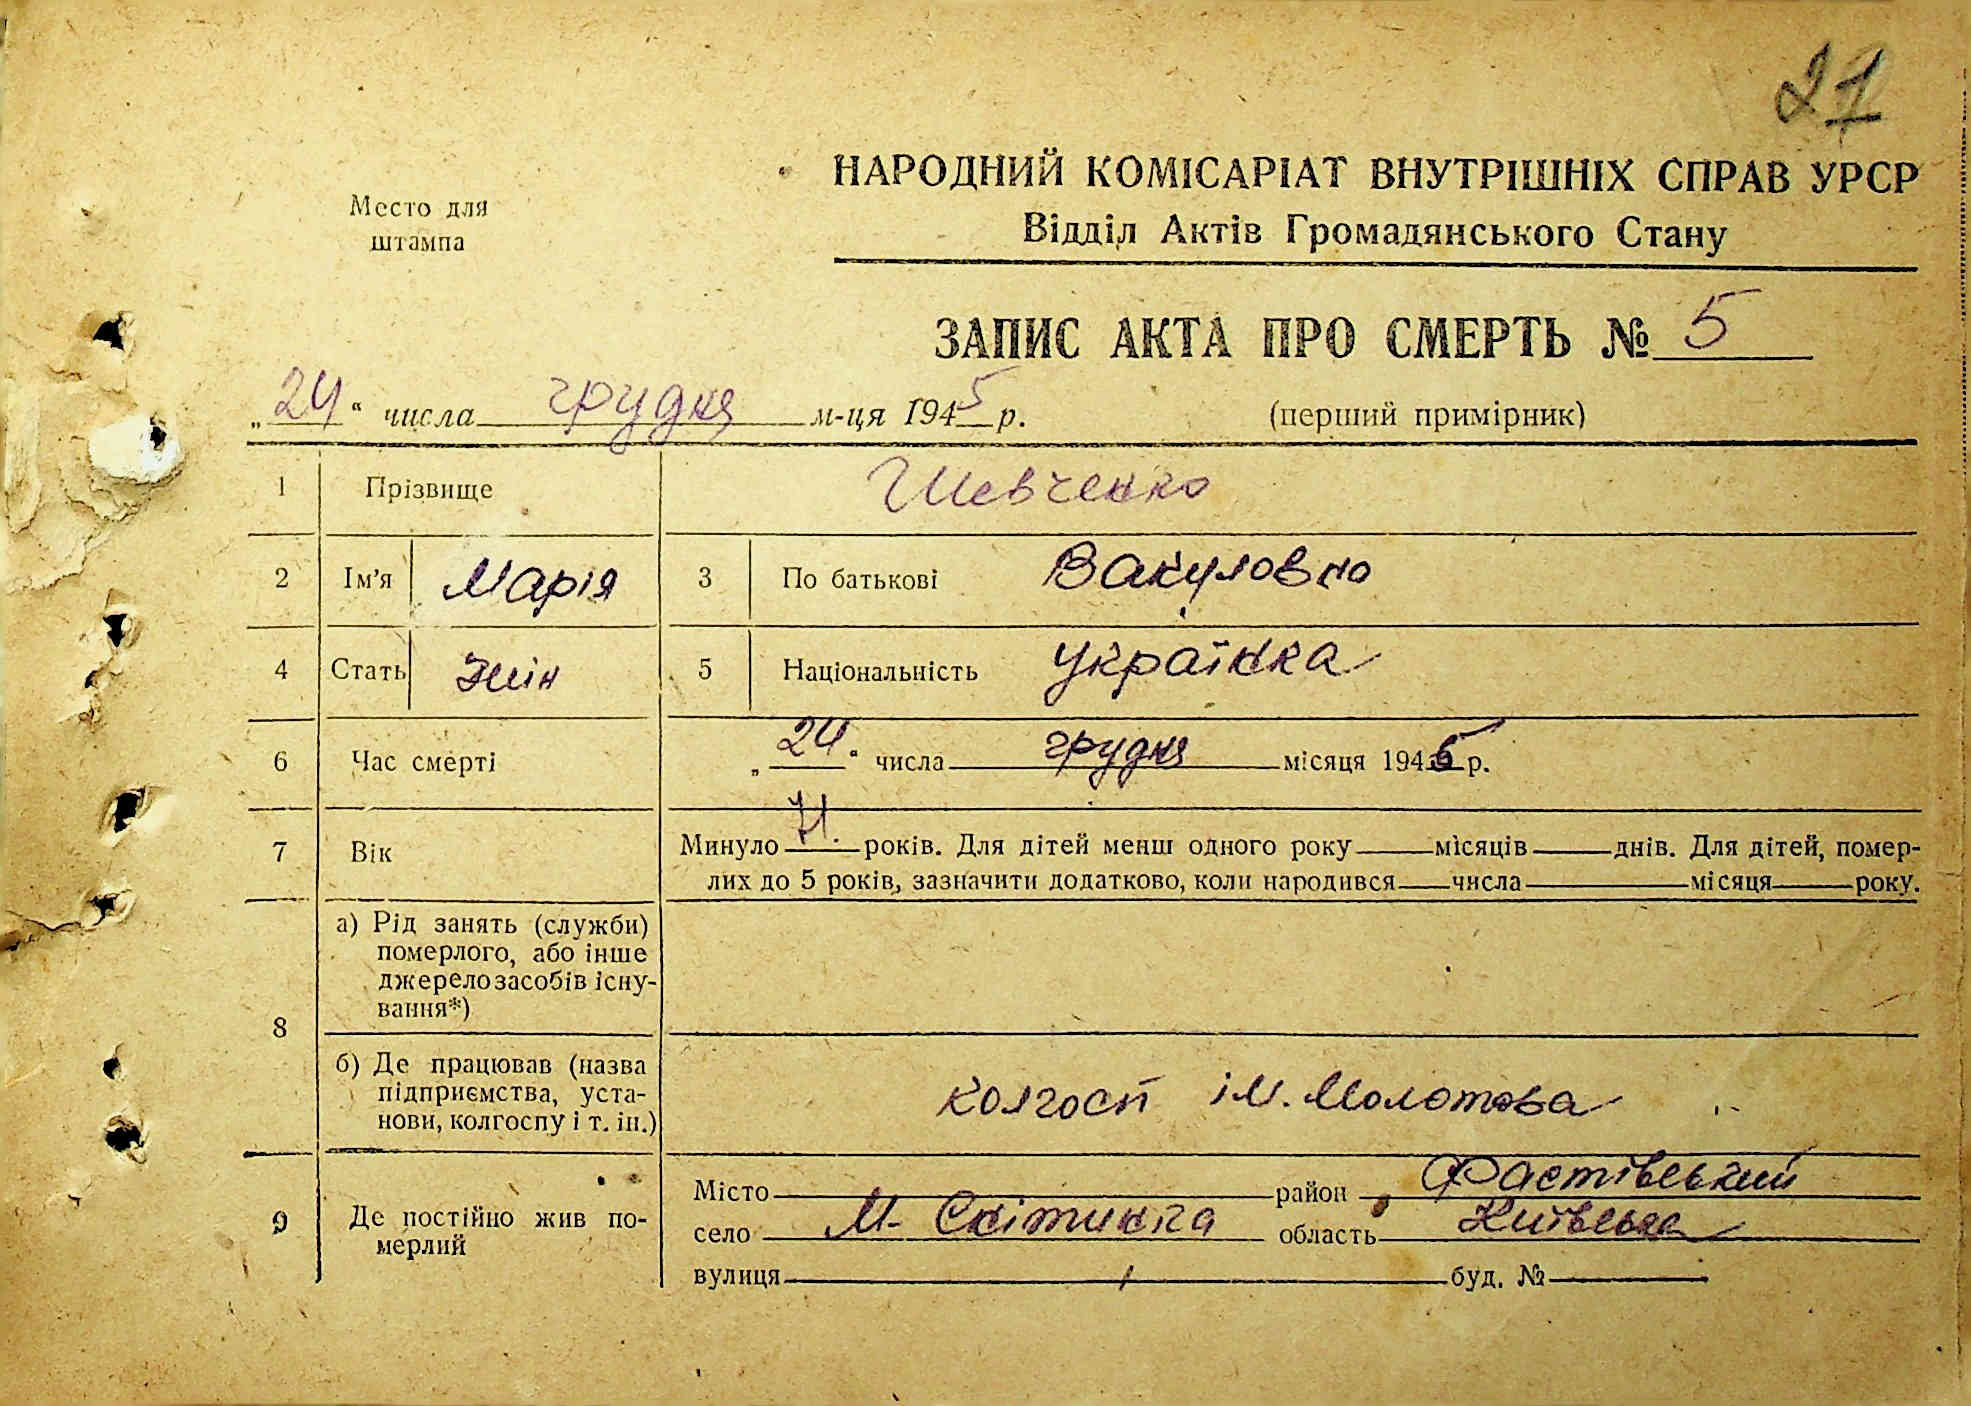 27
Место для
штампа
НАРОДНИЙ КОМІСАРІАТ ВНУТРІШНІХ СПРАВ УРСР
Відділ Актів Громадянського Стану
ЗАПИС АКТА ПРО СМЕРТЬ № 5
„24“ числа грудня м-ця 1945 р.
(перший примірник)
1 Прізвище Шевченко
2 Ім'я Марія 3 По батькові Вакуловно
4 Стать жін 5 Національність українка
6 Час смерті „24“ числа грудня місяця 1945 р.
7 Вік Минуло 71 років. Для дітей менш одного року місяців днів. Для дітей, помер-
лих до 5 років, зазначити додатково, коли народився числа місяця року.
8 а) Рід занять (служби)
померлого, або інше
джерело засобів існу-
вання*)
б) Де працював (назва
підприємства, уста-
нови, колгоспу і т. ін.)
колгосп ім. Молотова
9 Де постійно жив по-
мерлий
Місто район Фастівський
село М-Снітинка область Київська
вулиця буд. №